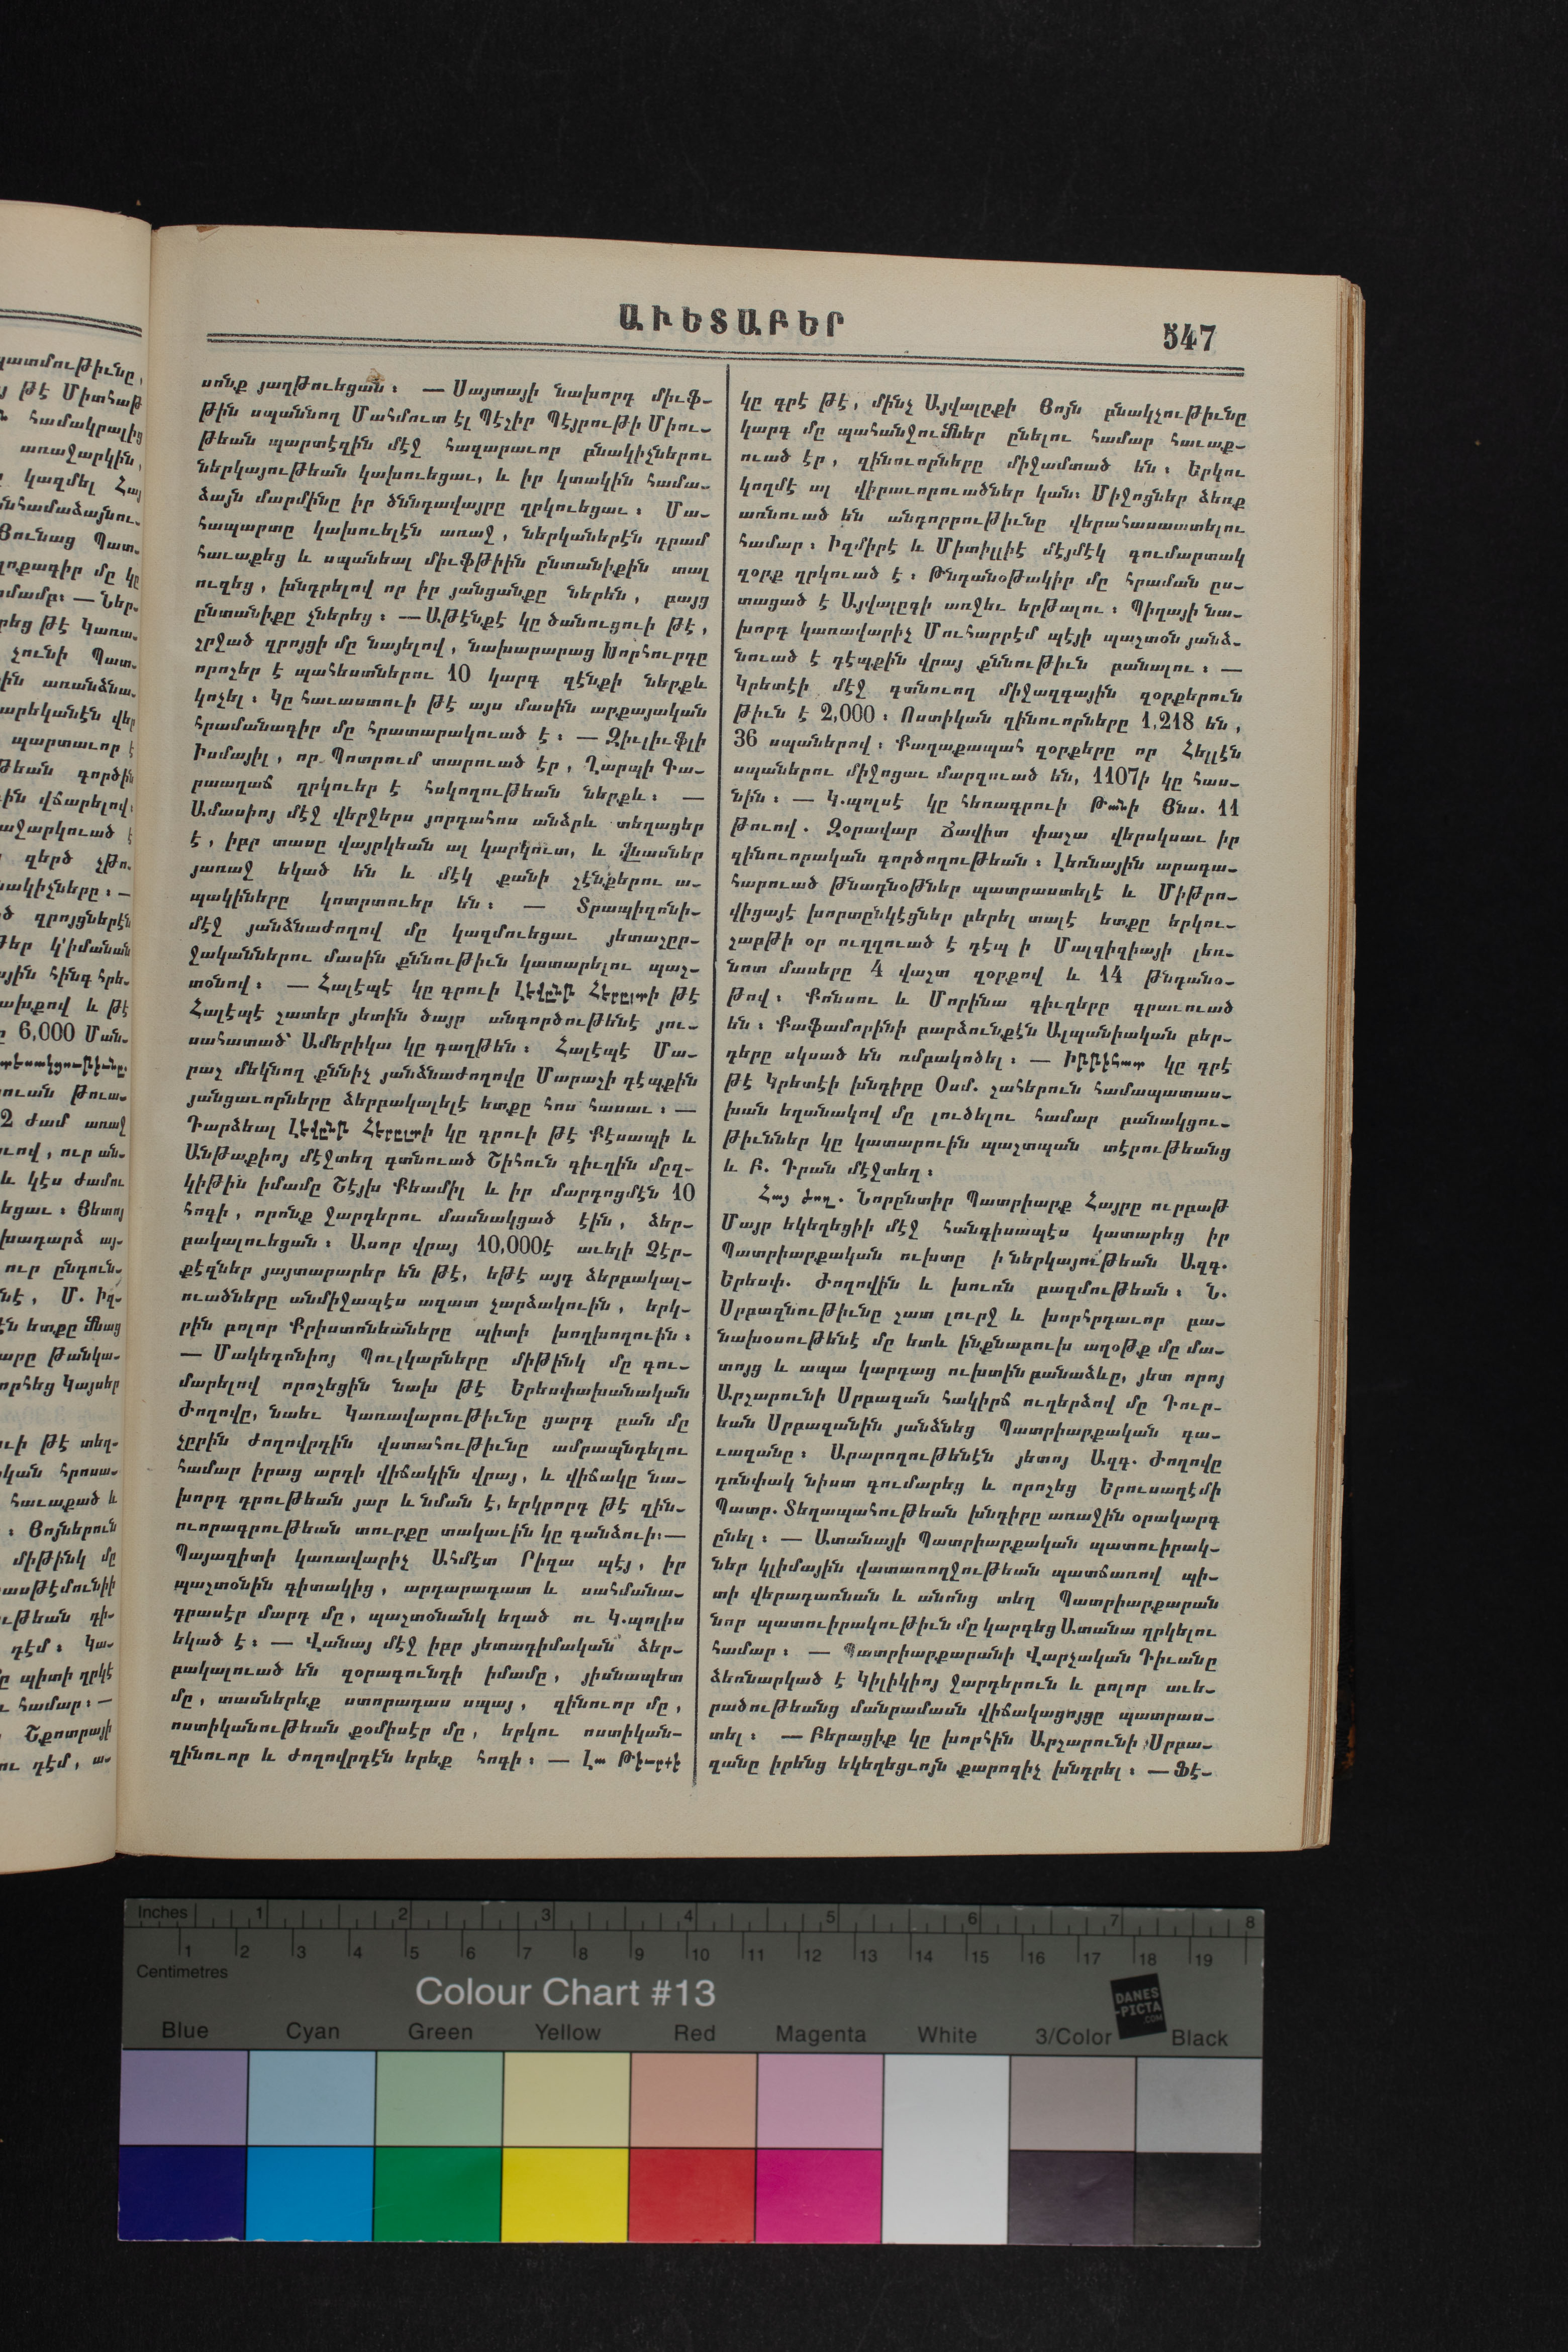 ԱՒԵՏԱԲԵՐ
547
սոնք յաղթուեցան։ — Սայտայի նախորդ միւֆ-
թին սպաննող Մահմուտ էլ Պէչիր Պէյրութի Միու-
թեան պարտէզին մէջ հազարաւոր բնակիչներու
ներկայութեան կախուեցաւ, և իր կտակին համա-
ձայն մարմինը իր ծննդավայրը ղրկուեցաւ։ Մա-
հապարտը կախուելէն առաջ, ներկաներէն դրամ
հաւաքեց և սպանեալ միւֆթիին ընտանիքին տալ
ուզեց, խնդրելով որ իր յանցանքը ներեն, բայց
ընտանիքը չներեց։ — Աթէնքէ կը ծանուցուի թէ,
շրջած զրոյցի մը նայելով, նախարարաց Խորհուրդը
որոշեր է պահեստներու 10 կարգ զէնքի ներքև
կոչել։ Կը հաւաստուի թէ այս մասին արքայական
հրամանագիր մը հրատարակուած է։ — Զիւլիւֆլի
Իսմայիլ, որ Պոտրում տարուած էր, Ղարպի Գա-
րաաղաճ ղրկուեր է հսկողութեան ներքև։ —
Ամասիոյ մէջ վերջերս յորդահոս անձրև տեղացեր
է, իբր տասը վայրկեան ալ կարկուտ, և վնասներ
յառաջ եկած են և մէկ քանի շէնքերու ա-
պակիները կոտրտուեր են։ — Տրապիզոնի-
մէջ յանձնաժողով մը կազմուեցաւ յետաշըր-
ջականներու մասին քննութիւն կատարելու պաշ-
տօնով։ — Հալէպէ կը գրուի Լէվընթ Հէրըլտի թէ
Հալէպէ շատեր յետին ծայր անգործութենէ յու-
սահատած՝ Ամերիկա կը գաղթեն։ Հալէպէ Մա-
րաշ մեկնող քննիչ յանձնաժողովը Մարաշի դէպքին
յանցաւորները ձերբակալելէ ետքը հոս հասաւ։ —
Դարձեալ Լէվընթ Հէրըլտի կը գրուի թէ Քէսապի և
Անթաքիոյ մէջտեղ գտնուած Շիհուն գիւղին մըզ-
կիթին իմամը Շէյխ Քեամիլ և իր մարդոցմէն 10
հոգի, որոնք ջարդերու մասնակցած էին, ձեր-
բակալուեցան։ Ասոր վրայ 10,000է աւելի Չէր-
քէզներ յայտարարեր են թէ, եթէ այդ ձերբակալ-
ուածները անմիջապէս ազատ չարձակուին, երկ-
րին բոլոր Քրիստոնեաները պիտի խողխողուին։
— Մակեդոնիոյ Պուլկարները միթինկ մը գու-
մարելով որոշեցին նախ թէ Երեսփոխանական
Ժողովը, նաև Կառավարութիւնը ցարդ բան մը
չըրին ժողովրդին վստահութիւնը ամրապնդելու
համար իրաց արդի վիճակին վրայ, և վիճակը նա-
խորդ դրութեան յար և նման է, երկրորդ թէ զին-
ուորագրութեան տուրքը տակաւին կը գանձուի։ —
Պայազիտի կառավարիչ Ահմէտ Րիզա պէյ, իր
պաշտօնին գիտակից, արդարադատ և սահմանա-
դրասէր մարդ մը, պաշտօնանկ եղած ու Կ.պոլիս
եկած է։ — Վանայ մէջ իբր յետադիմական ձեր-
բակալուած են զօրագունդի իմամը, յիսնապետ
մը, տասներեք ստորադաս սպայ, զինուոր մը,
ոստիկանութեան քօմիսէր մը, երկու ոստիկան-
զինուոր և ժողովրդէն երեք հոգի։ — Լա Թիւրքի
կը գրէ թէ, մինչ Այվալըքի Յոյն բնակչութիւնը
կարգ մը պահանջումներ ընելու համար հաւաք-
ուած էր, զինուորները միջամտած են։ Երկու
կողմէ ալ վիրաւորուածներ կան։ Միջոցներ ձեռք
առնուած են անդորրութիւնը վերահաստատելու
համար։ Իզմիրէ և Միտիլլիէ մէյմէկ գումարտակ
զօրք ղրկուած է։ Թնդանօթակիր մը հրաման ըս-
տացած է Այվալըգի առջեւ երթալու։ Պիղայի նա-
խորդ կառավարիչ Մուհարրէմ պէյի պաշտօն յանձ-
նուած է դէպքին վրայ քննութիւն բանալու։ —
Կրետէի մէջ գտնուող միջազգային զօրքերուն
թիւն է 2,000։ Ոստիկան զինուորները 1,218 են,
36 սպաներով։ Քաղաքապահ զօրքերը որ Հելլէն
սպաներու միջոցաւ մարզուած են, 1107ի կը հաս-
նին։ — Կ.պոլսէ կը հեռագրուի Թանի Յնս. 11
թուով. Զօրավար Ճավիտ փաշա վերսկսաւ իր
զինուորական գործողութեան։ Լեռնային արագա-
հարուած թնդանօթներ պատրաստելէ և Միթրո-
վիցայէ խորտընկէցներ բերել տալէ ետքը երկու-
շարթի օր ուղղուած է դէպ ի Մալզիզիայի լեռ-
նոտ մասերը 4 վաշտ զօրքով և 14 թնդանօ-
թով։ Քոնսու և Մորինա գիւղերը գրաւուած
են։ Քաֆամորինի բարձունքէն Ալպանիական բեր-
դերը սկսած են ռմբակոծել։ — Իթթիհատ կը գրէ
թէ Կրետէի խնդիրը Օսմ. շահերուն համապատաս-
խան եղանակով մը լուծելու համար բանակցու-
թիւններ կը կատարուին պաշտպան տէրութեանց
և Բ. Դրան մէջտեղ։
Հայ ժող. Նորընտիր Պատրիարք Հայրը ուրբաթ
Մայր եկեղեցիի մէջ հանդիսապէս կատարեց իր
Պատրիարքական ուխտը ի ներկայութեան Ազգ.
Երեսփ. Ժողովին և խուռն բազմութեան։ Ն.
Սրբազնութիւնը շատ լուրջ և խորհրդաւոր բա-
նախօսութենէ մը ետև ինքնաբուխ աղօթք մը մա-
տոյց և ապա կարդաց ուխտին բանաձևը, յետ որոյ
Արշարունի Սրբազան հակիրճ ուղերձով մը Դուր-
եան Սրբազանին յանձնեց Պատրիարքական գա-
ւազանը։ Արարողութենէն յետոյ Ազգ. Ժողովը
դռնփակ նիստ գումարեց և որոշեց Երուսաղէմի
Պատր. Տեղապահութեան խնդիրը առաջին օրակարգ
ընել։ — Ատանայի Պատրիարքական պատուիրակ-
ներ կլիմային վատառողջութեան պատճառով պի-
տի վերադառնան և անոնց տեղ Պատրիարքարան
նոր պատուիրակութիւն մը կարգեց Ատանա ղրկելու
համար։ — Պատրիարքարանի Վարչական Դիւանը
ձեռնարկած է Կիլիկիոյ ջարդերուն և բոլոր աւե-
րածութեանց մանրամասն վիճակացոյցը պատրաս-
տել։ — Բերացիք կը խորհին Արշարունի Սրբա-
զանը իրենց եկեղեցւոյն քարոզիչ խնդրել։ — Ֆէ-
Inches 1 2 3 4 5 6 7 8
1 2 3 4 5 6 7 8 9 10 11 12 13 14 15 16 17 18 19
Centimetres
Colour Chart #13
DANES
-PICTA
.COM
Blue Cyan Green Yellow Red Magenta White 3/Color Black